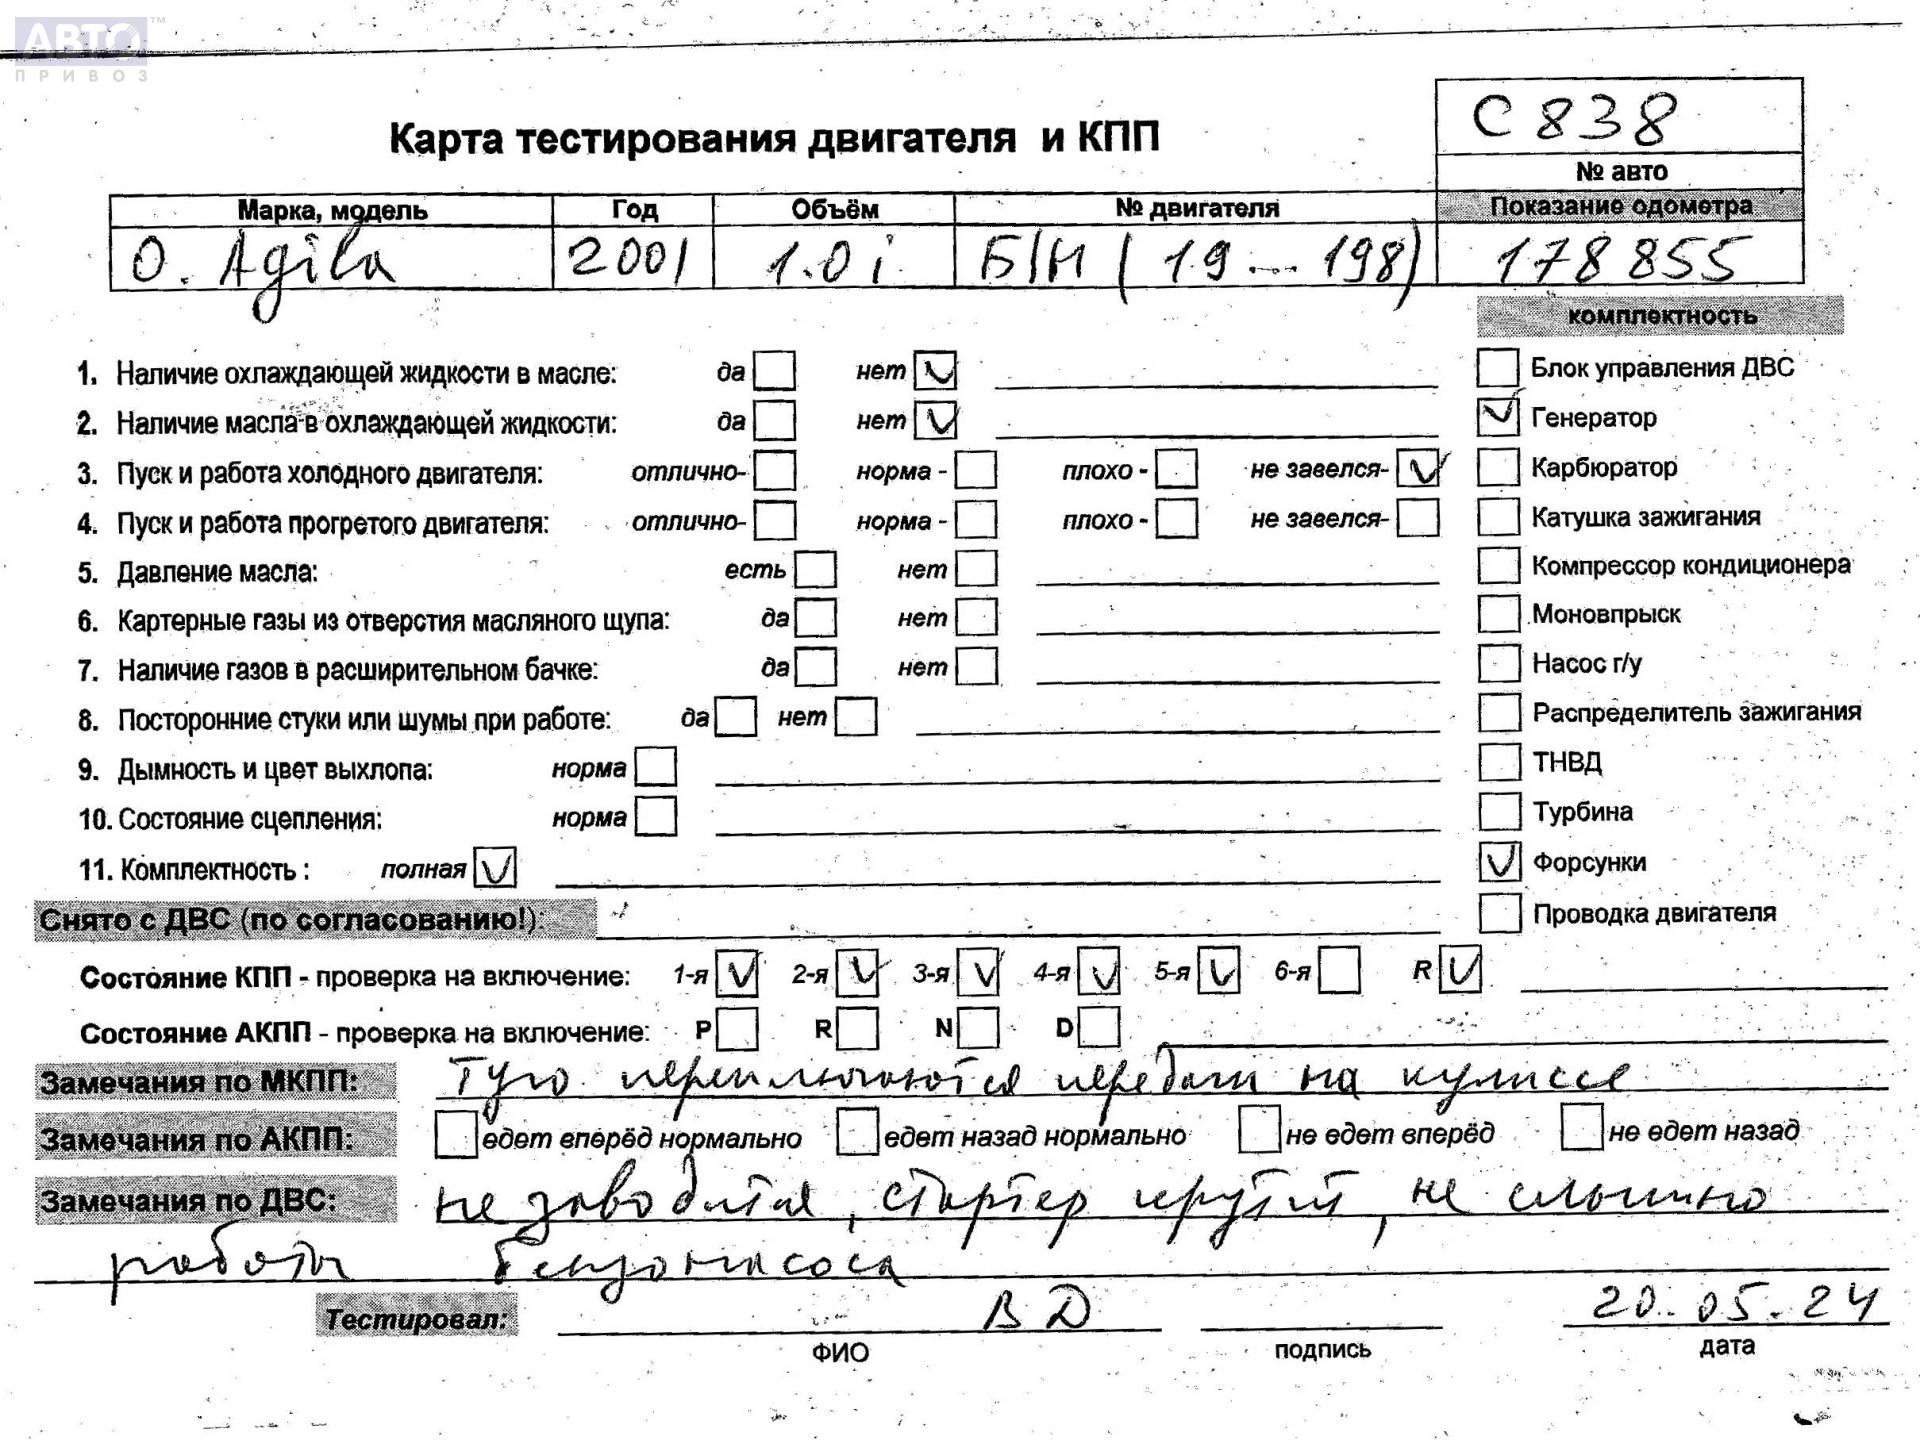 АВТО™
ПРИВОЗ
С838
Карта тестирования двигателя и КПП
№ авто
Марка, модель Год Объём № двигателя Показание одометра
O. Agila 2001 1.0i Б/Н (19 ... 198) 178855
комплектность
1. Наличие охлаждающей жидкости в масле: да нет ✓ Блок управления ДВС
2. Наличие масла в охлаждающей жидкости: да нет ✓ ✓ Генератор
3. Пуск и работа холодного двигателя: отлично- норма - плохо - не завелся- ✓ Карбюратор
4. Пуск и работа прогретого двигателя: отлично- норма - плохо - не завелся- Катушка зажигания
5. Давление масла: есть нет Компрессор кондиционера
6. Картерные газы из отверстия масляного щупа: да нет Моновпрыск
7. Наличие газов в расширительном бачке: да нет Насос г/у
8. Посторонние стуки или шумы при работе: да нет Распределитель зажигания
9. Дымность и цвет выхлопа: норма ТНВД
10. Состояние сцепления: норма Турбина
11. Комплектность : полная ✓ ✓ Форсунки
Снято с ДВС (по согласованию!): Проводка двигателя
Состояние КПП - проверка на включение: 1-я ✓ 2-я ✓ 3-я ✓ 4-я ✓ 5-я ✓ 6-я R ✓
Состояние АКПП - проверка на включение: P R N D
Замечания по МКПП: Туго переключаются передачи на кулиссе
Замечания по АКПП: едет вперёд нормально едет назад нормально не едет вперёд не едет назад
Замечания по ДВС: не заводится, стартер крутит, не слышно
работы бензонасоса
Тестировал: ВД 20.05.24
ФИО подпись дата